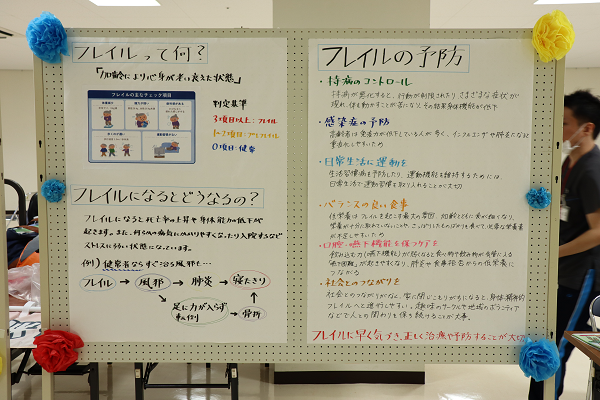 フレイルって何？
「加齢により心身が老い衰えた状態」
フレイルの主なチェック項目
判定基準
3項目以上：フレイル
1〜2項目：プレフレイル
0項目：健常
フレイルになるとどうなるの？
フレイルになると死亡率の上昇や身体能力の低下が
起きます。また、何らかの病気にかかりやすくなったり入院するなど
ストレスに弱い状態になっています。
例）健常者ならすぐ治る風邪…
フレイル → 風邪 → 肺炎 → 寝たきり
足に力が入らず
転倒 → 骨折
フレイルの予防
・持病のコントロール
持病が悪化すると、行動が制限されたり、さまざまな症状が
現れ、体を動かすことが苦になり、その結果身体機能が低下
・感染症の予防
高齢者は免疫力が低下している人が多く、インフルエンザや肺炎などに
重症化しやすいため
・日常生活に運動を
生活習慣病を予防したり、運動機能を維持するためには、
日常生活で運動習慣を取り入れることが大切
・バランスの良い食事
低栄養はフレイルを起こす最大の原因。加齢とともに食が細くなり、
栄養が十分に取れていないことや、さっぱりしたものばかり食べて必要な栄養素
が不足しやすいため
・口腔・嚥下機能を保つケアを
飲み込む力（嚥下機能）が弱くなると食べ物や飲み物が気管に入る
"嚥下困難"が起きやすくなり、肺炎や食事形态からの低栄養に
つながる
・社会とのつながりを
社会とのつながりがなく、家に閉じこもりがちになると、身体・精神的
フレイルへと進行しやすい。趣味のサークルや地域のボランティア
などで人との関わりを保ち続けることが大事。
フレイルに早く気づき、正しく治療や予防することが大切